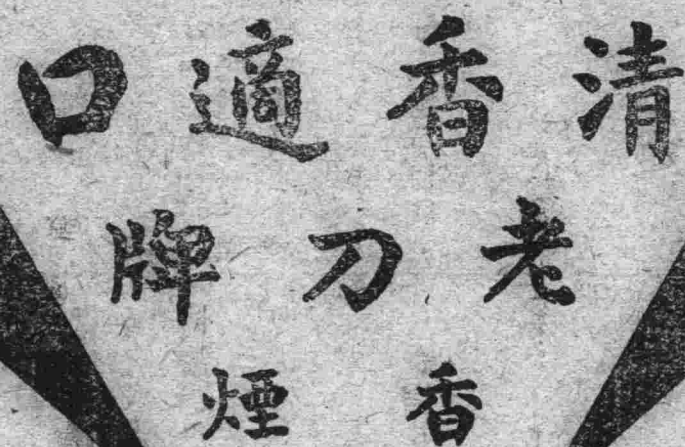 清香適口
老刀牌
香煙